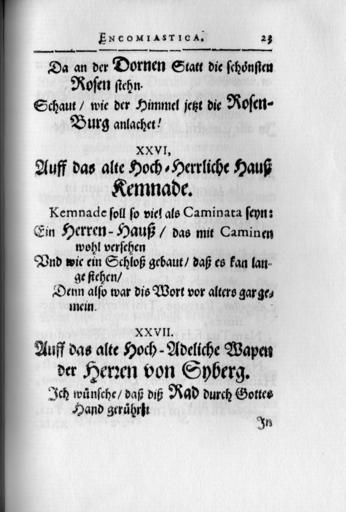 ENCOMIASTICA. 23
Da an der Dornen Statt die schönsten
Rosen stehn.
Schaut / wie der Himmel jetzt die Rosen-
Burg anlachet!
XXVI,
Auff das alte Hoch-Herrliche Hauß
Kemnade.
Kemnade soll so viel als Caminata seyn:
Ein Herren-Hauß / das mit Caminen
wohl versehen
Vnd wie ein Schloß gebaut / daß es kan lan-
ge stehen /
Denn also war dis Wort vor alters gar ge-
mein.
XXVII.
Auff das alte Hoch-Adeliche Wapen
der Herren von Syberg.
Ich wünsche / daß diß Rad durch Gottes
Hand gerührt
In